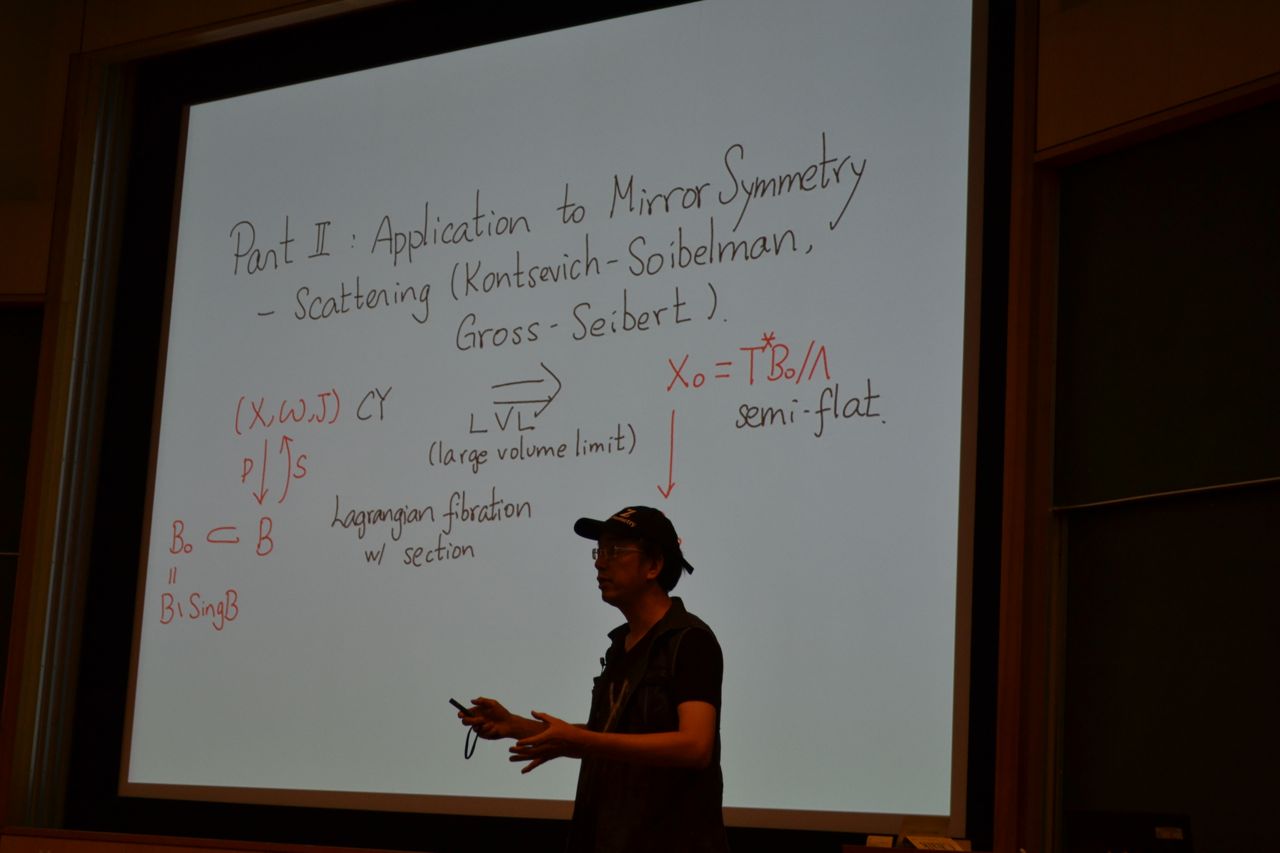 Part II : Application to Mirror Symmetry
- Scattering (Kontsevich-Soibelman,
Gross-Seibert).
(X, ω, J) CY
LVL
(large volume limit)
X₀ = T*B₀/Λ
semi-flat.
P ↓ ↑ S
B₀ ⊂ B
Lagrangian fibration
w/ section
||
B\SingB